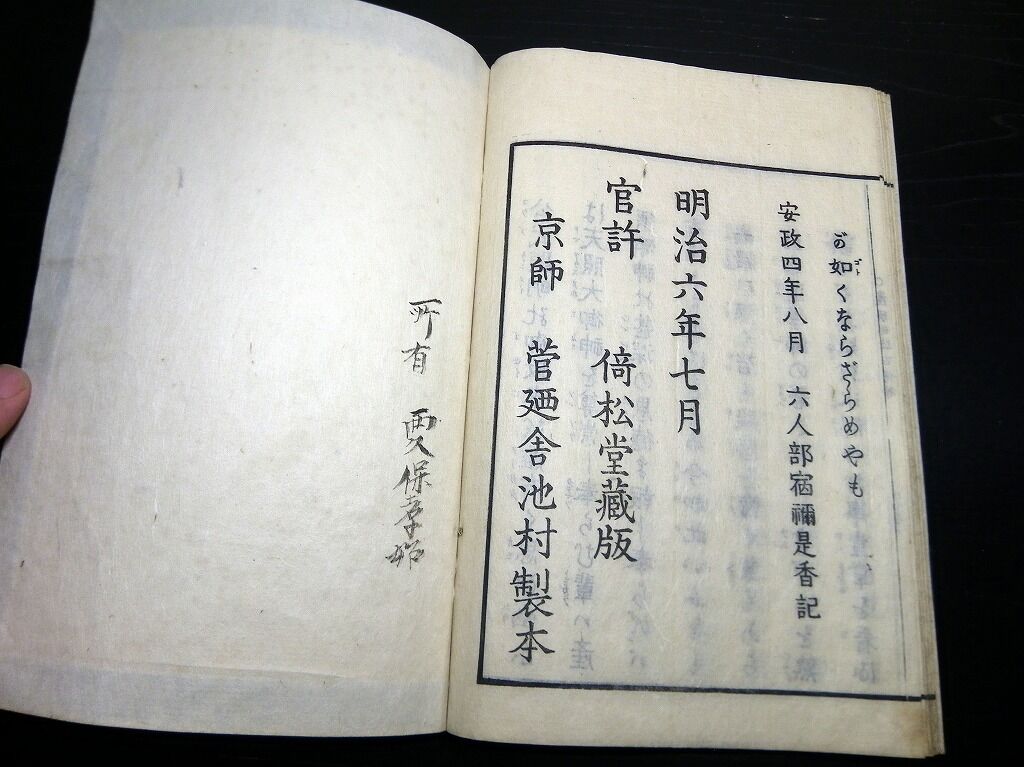 が如くならざらめやも
安政四年八月の 六人部宿禰是香記
明治六年七月
官許 倚松堂藏版
京師 菅廼舎池村製本
所有 賈久保孝